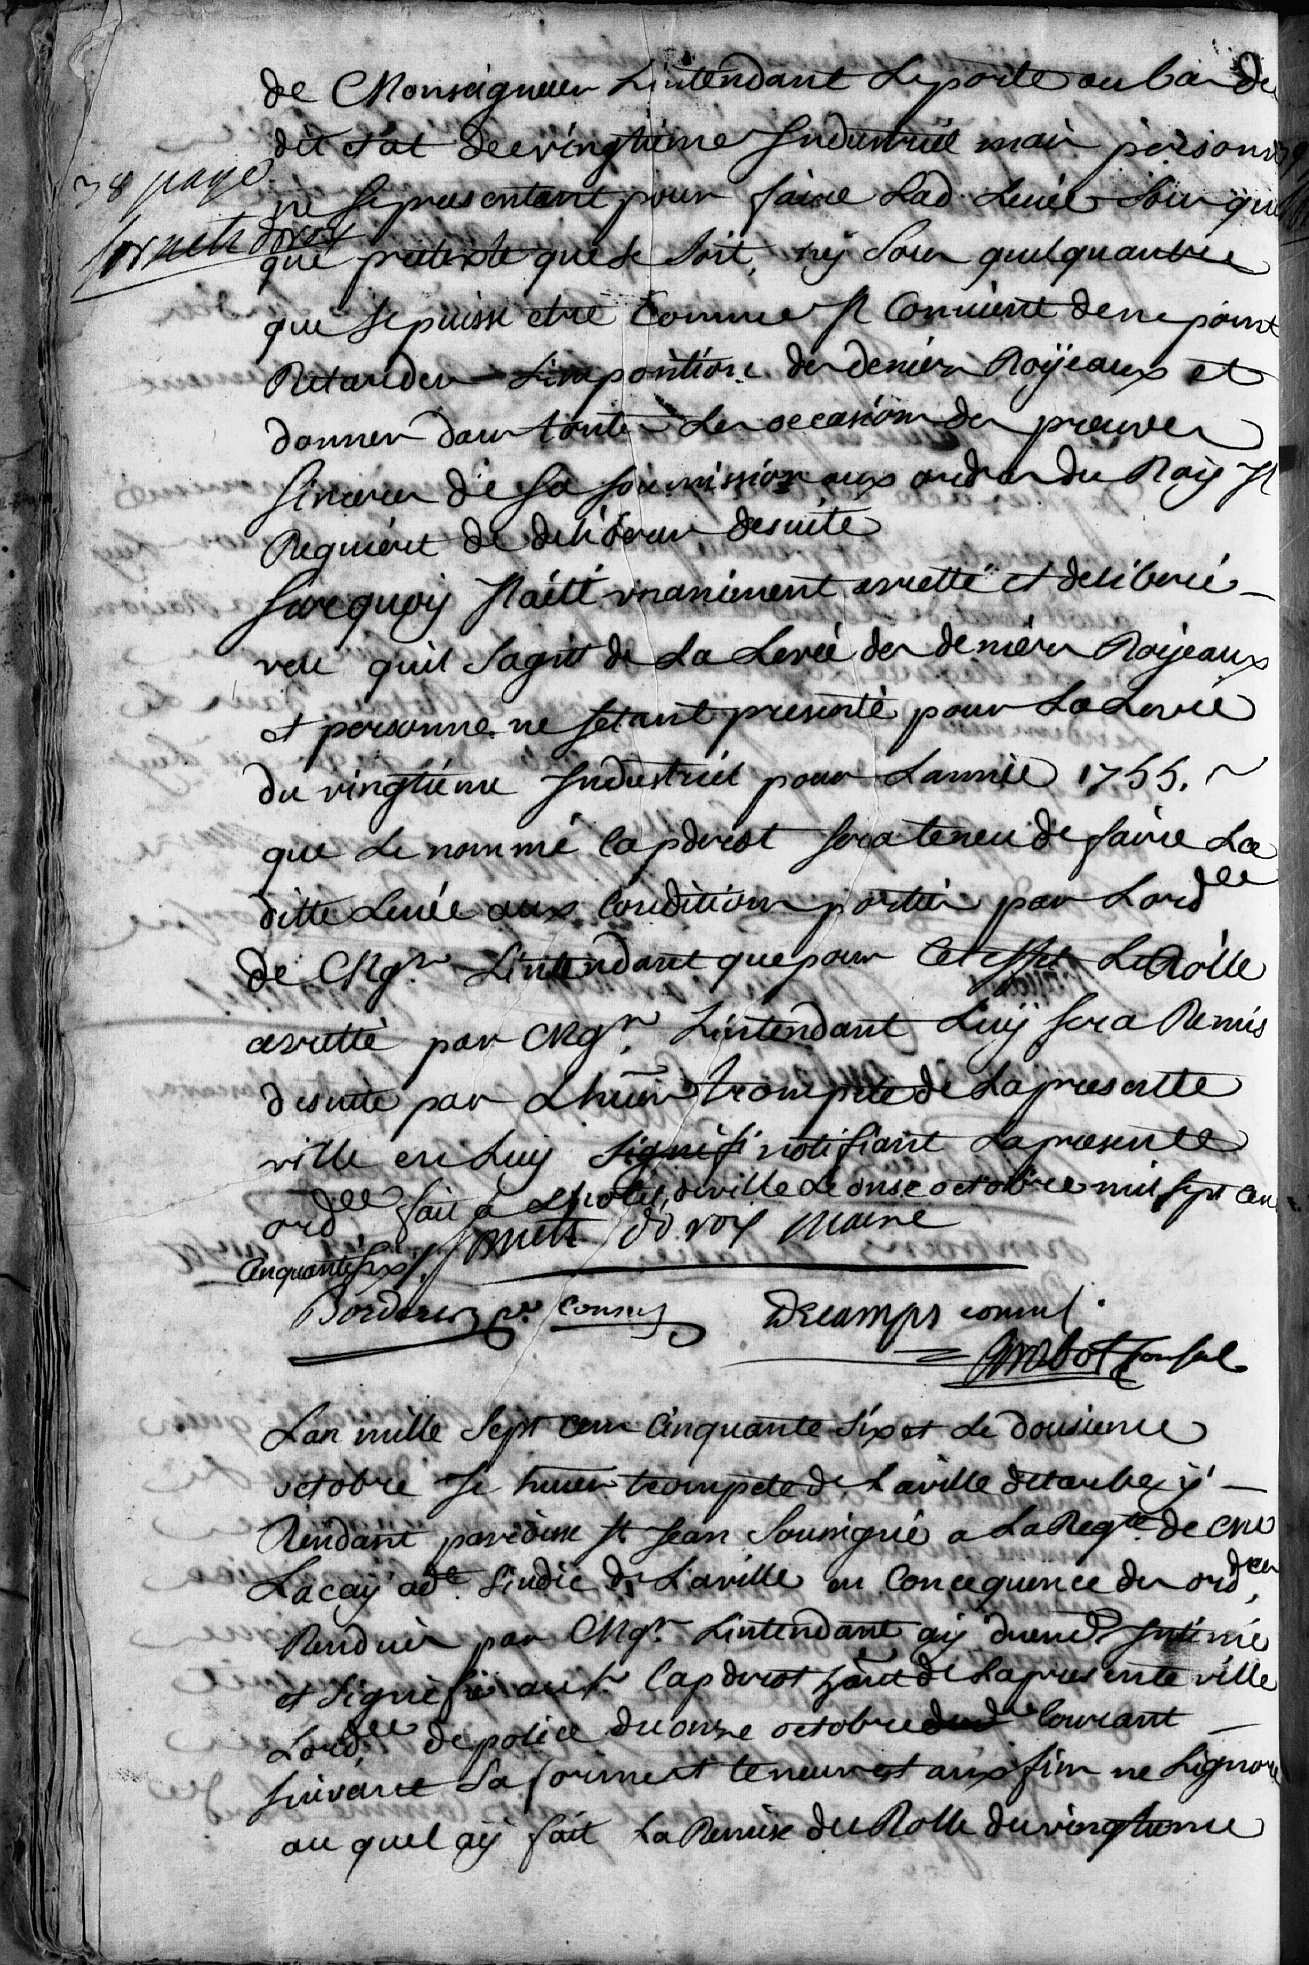 de Monseigneur Lintendant Le porte au bas du
dit etat de vingtieme Industriel mais personne
38 page
ne se presentant pour faire Lad. Levée Sous quel
fornets doroy
que pretexte que ce soit, ny Sous quelquautre
que se puisse etre Comme Il Convient de ne point
Retarder Limposition des deniers Royeaux et
donner dans toutes Les occasions des preuves
sinceres de sa soumission aux ordres du Roy Il
Requiert de deliberer desuite
Surquoy Il a été unanimement arretté et deliberé
veu quil Sagit de La Levée des deniers Royeaux
et personne ne setant presenté pour La Levée
du vingtieme Industriel pour Lannée 1755.
que Le nommé Capdrest sera teneu de faire La
ditte Levée aux Conditions portées par Lordce
de Mgr Lintendant que pour Cet effet Le Rolle
arretté par Mgr. Lintendant Luy sera Remis
desuite par Lhuier trompete de La presentte
ville en Luy signifi notifiant La presente
ordce fait a Lhotel de ville Le onse octobre mil sept cen
Cinquante six. fornets doroy maire
Borderes pr. Consul Decamps consul.
Consul
Lan mille Sept cens Cinquante Six et Le dousieme
octobre Je huier trompete de La ville de tarbe y
Residant paroisse St Jean Soussigné a La Reqte de Me
Lacay adt. Sindic de La ville en Consequence des ordces
Rendues par Mgr. Lintendant ay Intimé
et Signifié au sr Capdrest hant de La presente ville
Lordce de police du onze octobre courant
suivant Sa forme et teneur et aux fins ne Lignore
au quel ay fait La Remise du Rolle du vingtieme